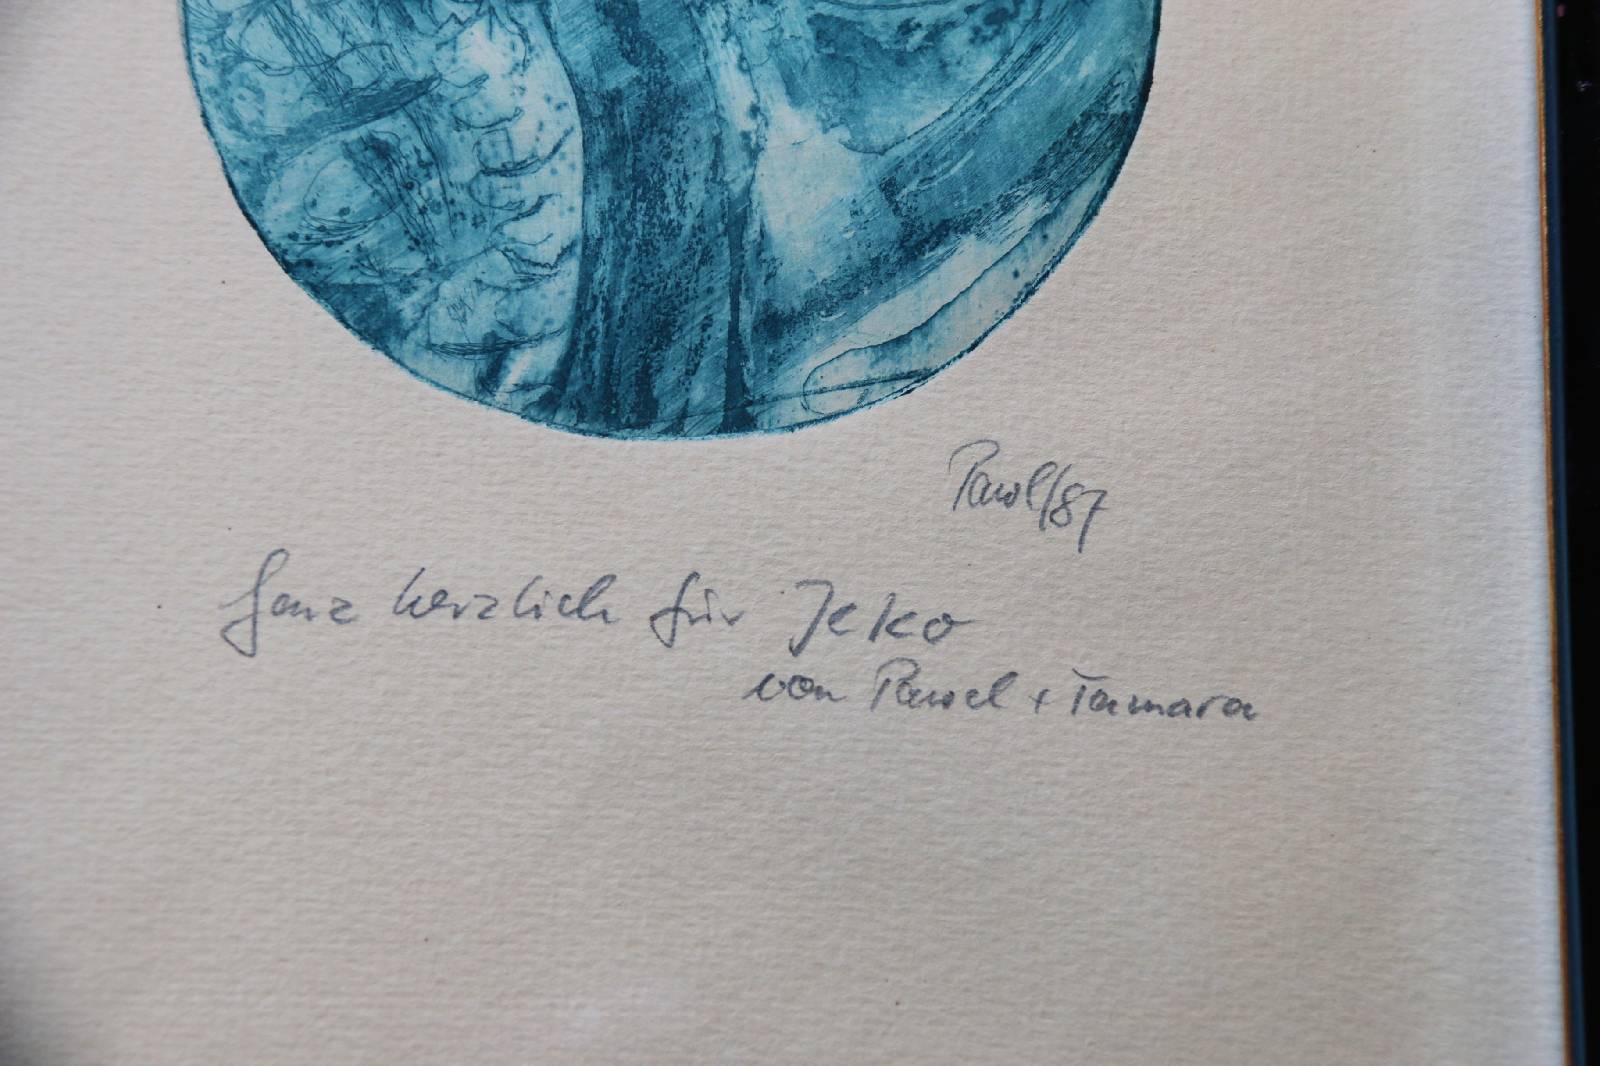 Pawel/87
Ganz herzlich für Jeko
von Pawel + Tamara